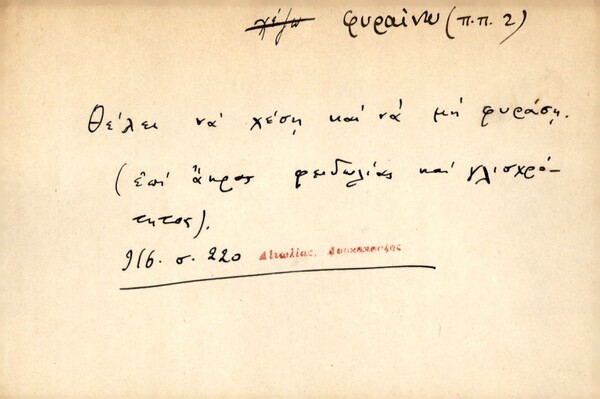 χέζω φυραίνω (π.π. 2)
Θέλει νά χέση̣ καί νά μή φυράση̣.
(ἐπί ἄκρας φειδωλίας καί γλισχρό-
τητος).
916. σ. 220 Αιτωλίας.